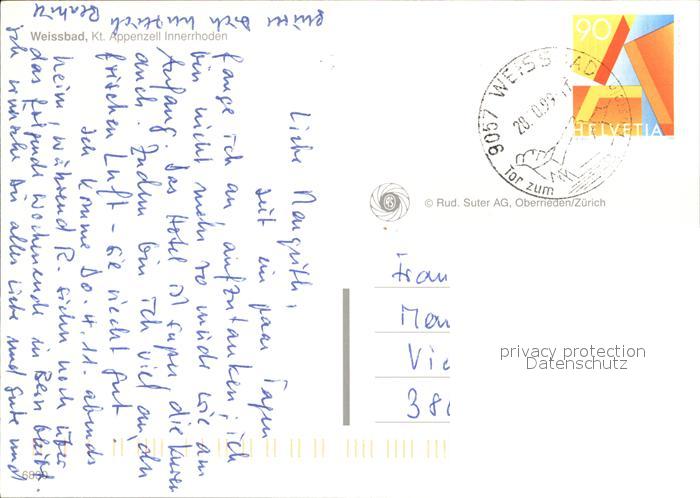 Weissbad, Kt. Appenzell Innerrhoden
Liebe Margrith,
seit ein paar Tagen
fange ich an, aufzutanken; ich
bin nicht mehr so müde wie am
Anfang. Das Hotel ist super, die Kuren
auch. Zudem bin ich viel an der
frischen Luft - sie riecht gut.
Ich komme Do. 4.11. abends
heim, während R. sicher noch über
das folgende Wochenende in Bern bleibt.
Ich wünsche Dir alles Liebe und Gute und
grüsse Dich herzlich
90
HELVETIA
9057 WEISSBAD
Tor zum
© Rud. Suter AG, Oberrieden/Zürich
Frau
Mar
Vic
380
privacy protection
Datenschutz